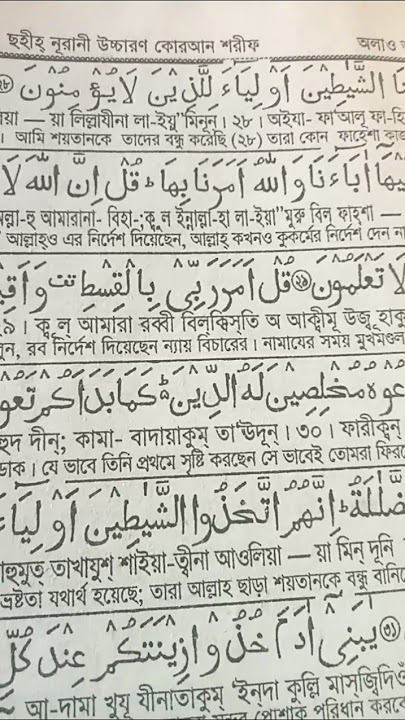 ছহীহ্ নূরানী উচ্চারণ কোরআন শরীফ
الشَّيٰطِيْنَ اَوْلِيَآءَ لِلَّذِيْنَ لَا يُؤْمِنُوْنَ
য়া — য়া লিল্লাযীনা লা-ইয়ু"মিনূন। ২৮। অইযা- ফা'আলূ ফা-হি
। আমি শয়তানকে তাদের বন্ধু করেছি (২৮) তারা কোন ফাহেশা কাজ
اٰبَآءَنَا وَاللّٰهُ اَمَرَنَا بِهَا ؕ قُلْ اِنَّ اللّٰهَ لَا
ল্লা-হু আমারানা- বিহা-; ক্বুল ইন্নাল্লা-হা লা-ইয়া"মুরু বিল্ ফাহ্শা —
আল্লাহও এর নির্দেশ দিয়েছেন, আল্লাহ্ কখনও কুকর্মের নির্দেশ দেন না
لَا تَعْلَمُوْنَ ۝٢٨ قُلْ اَمَرَ رَبِّيْ بِالْقِسْطِ
২৯। ক্বুল্ আমারা রব্বী বিলক্বিস্তি অ আক্বীমূ উজূ হাকু
রব নির্দেশ দিয়েছেন ন্যায় বিচারের। নামাযের সময় মুখমণ্ডল
مُخْلِصِيْنَ لَهُ الدِّيْنَ ؕ كَمَا بَدَاَكُمْ
হুদ দীন্; কামা- বাদায়াকুম্ তা'ঊদূন্। ৩০। ফারীক্বন্
ডাক। যে ভাবে তিনি প্রথমে সৃষ্টি করছেন সে ভাবেই তোমরা ফিরে
الضَّلٰلَةُ ؕ اِنَّهُمُ اتَّخَذُوا الشَّيٰطِيْنَ اَوْلِيَآءَ
হুমুত্ তাখাযুশ্ শাইয়া-ত্বীনা আওলিয়া — য়া মিন্ দূনি
ভ্রষ্টতা যথার্থ হয়েছে; তারা আল্লাহ ছাড়া শয়তানকে বন্ধু বানিয়ে
يٰبَنِيْٓ اٰدَمَ خُذُوْا زِيْنَتَكُمْ عِنْدَ كُلِّ
আ-দামা খুযূ যীনাতাকুম্ 'ইন্দা কুল্লি মাস্জিদিওঁ
পোশাক পরিধান করবে